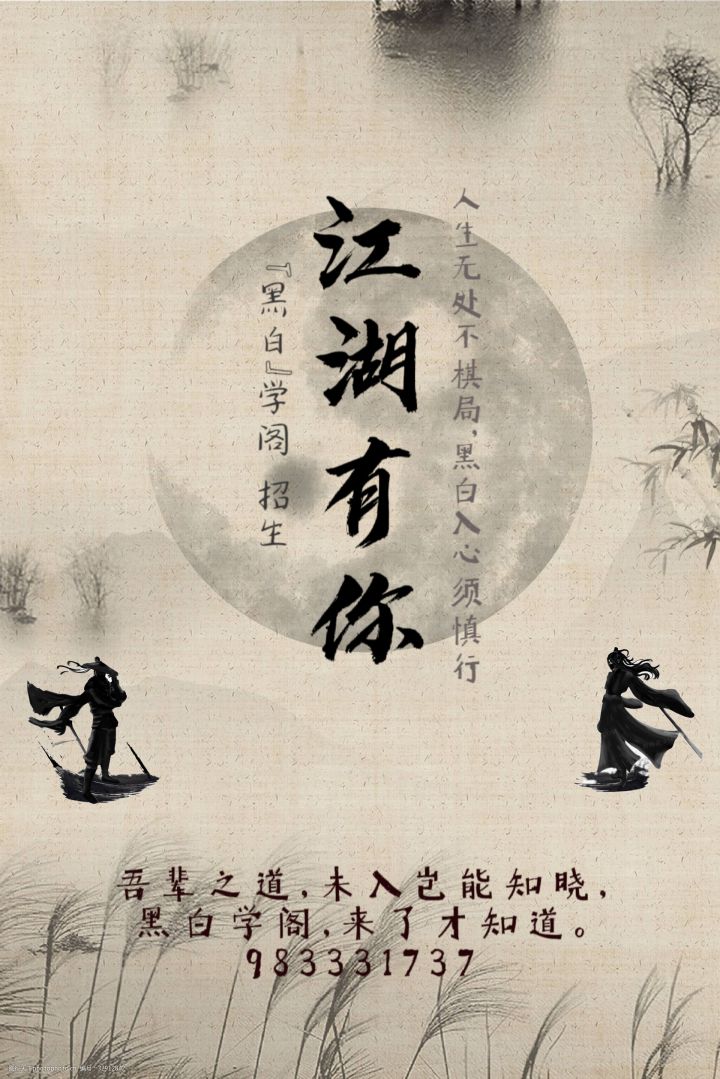 人生无处不棋局，黑白入心须慎行
江湖有你
『黑白』学阁 招生
吾辈之道，未入岂能知晓，
黑白学阁，来了才知道。
983331737